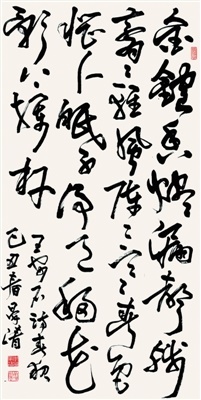 金鑪香燼漏聲殘
翦〻輕風陣〻寒春色
惱人眠不得月移花
影上欄杆
王安石詩春夜
己丑春